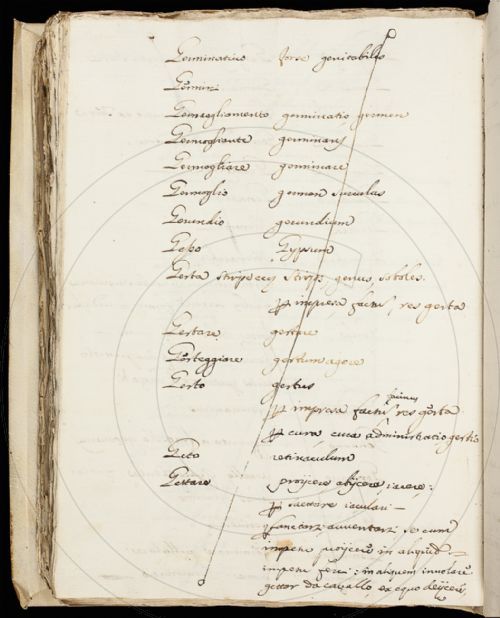 Germinativo forse genitabilis
Germini
Germogliamento germinatio germen
Germogliante germinans
Germogliare germinare
Germoglio germen surculus
Gerundio gerundium
Gesso Gypsum
Gesta stirps genus, soboles.
impresa factus, res gesta
Gestare gestare
Gesteggiare gestum agere
Gesto gestus
impresa factus res gesta
cura cura administratio gestio
Geto retinaculum
Gettare proijcere abijcere, iacere;
saettare iaculari
avventarsi se cum
impetu proijcere in aliquid
impetu ferri: in aliquem involare
gettar da cavallo ex equo deijcere,